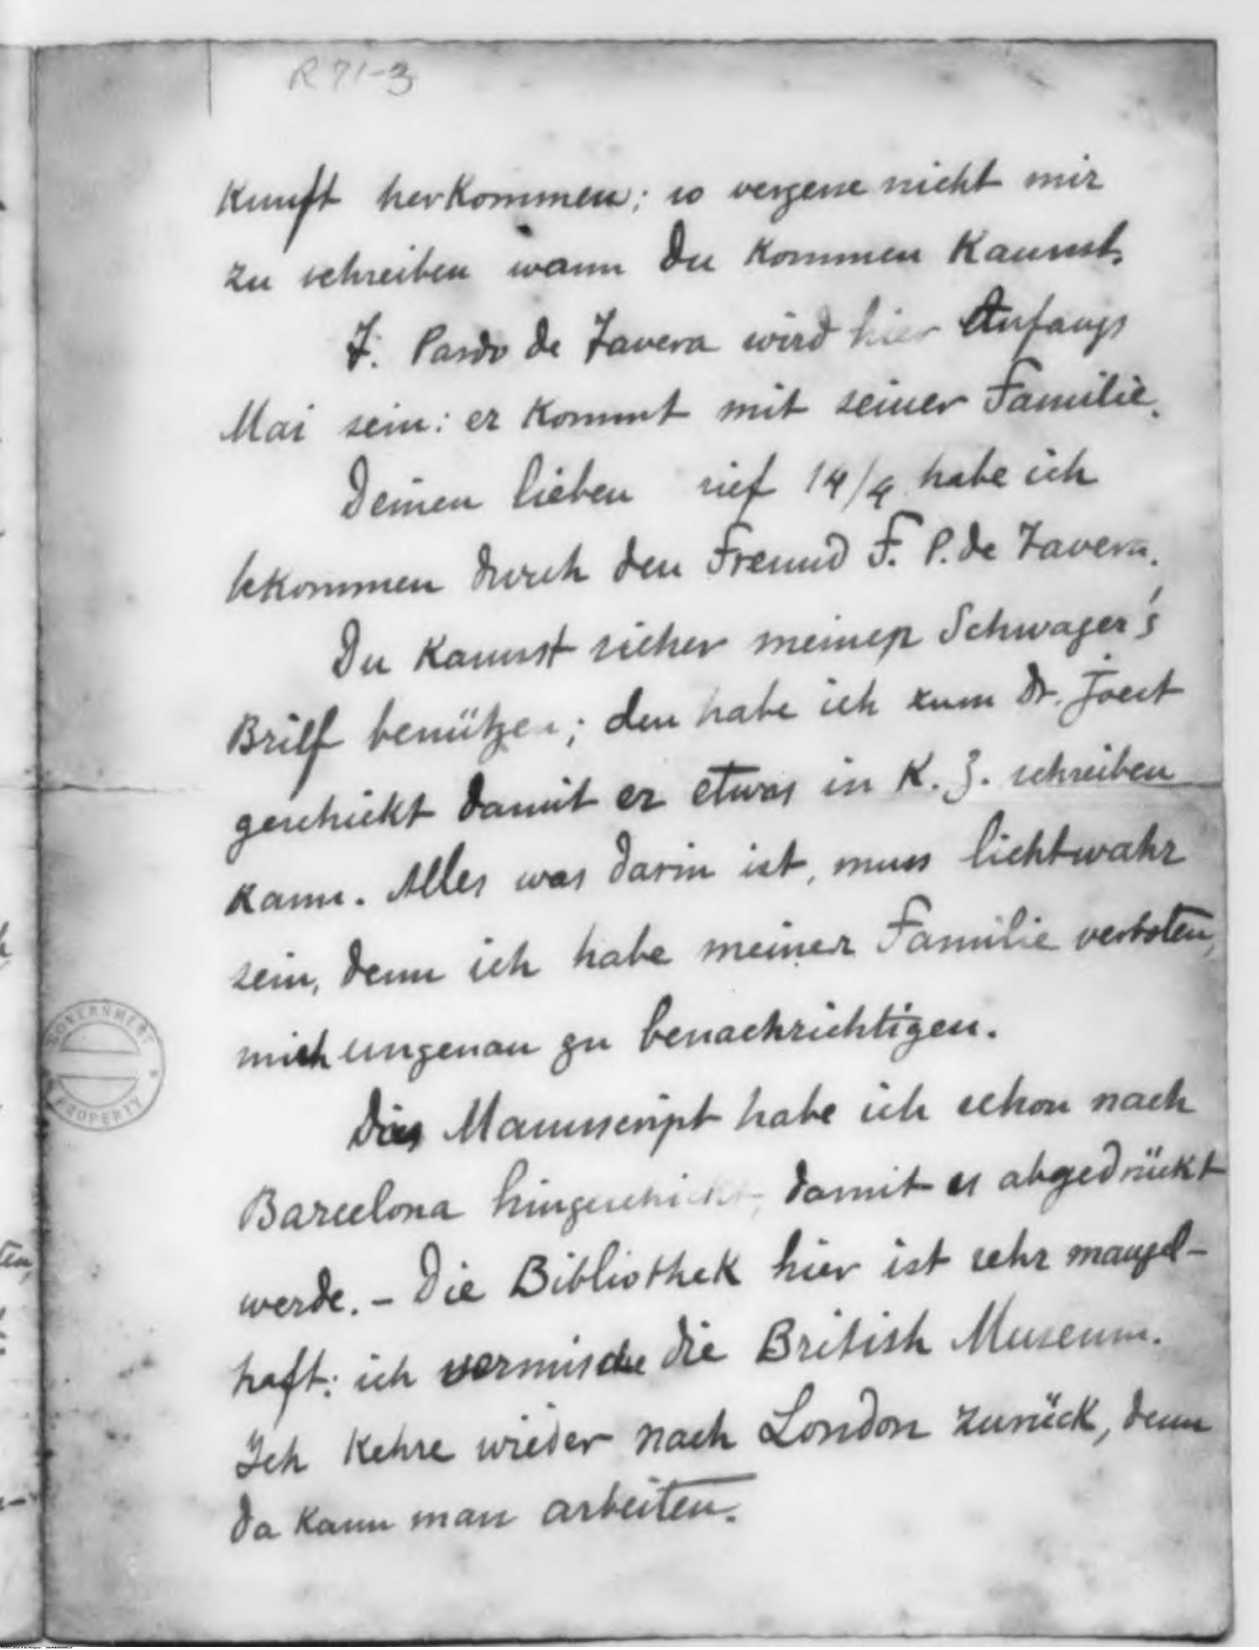 R 71-3
kunft herkommen; so vergesse nicht mir
zu schreiben wann Du kommen kannst.
T. Pardo de Tavera wird hier Anfangs
Mai sein: er kommt mit seiner Familie.
Deinen lieben rief 14/4 habe ich
bekommen durch den Freund F. P. de Tavera.
Du kannst sicher meiner Schwager's
Brilf benützen; den habe ich zum Dr. Joest
geschickt damit er etwas in K. Z. schreiben
kann. Alles was darin ist, muss lichtwahr
sein, denn ich habe meiner Familie verboten,
mich ungenau zu benachrichtigen.
Das Manuscript habe ich schon nach
Barcelona hingeschickt, damit es abgedrückt
werde. – Die Bibliothek hier ist sehr mangel-
haft: ich vermische die British Museum.
Ich kehre wieder nach London zurück, denn
da kann man arbeiten.
GOVERNMENT
PROPERTY